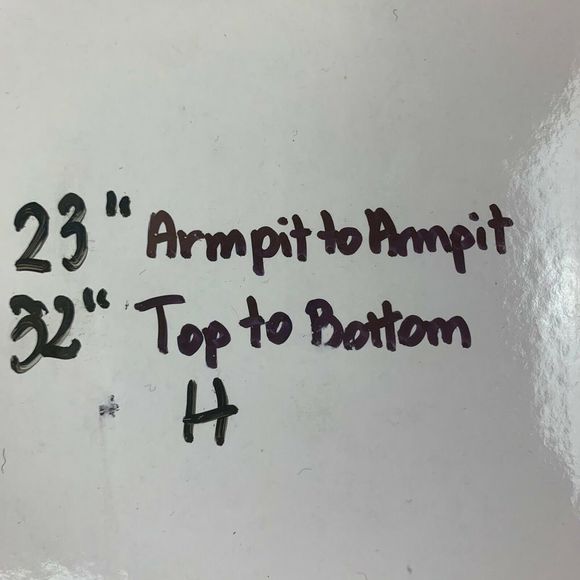 23" Armpit to Armpit
32" Top to Bottom
H